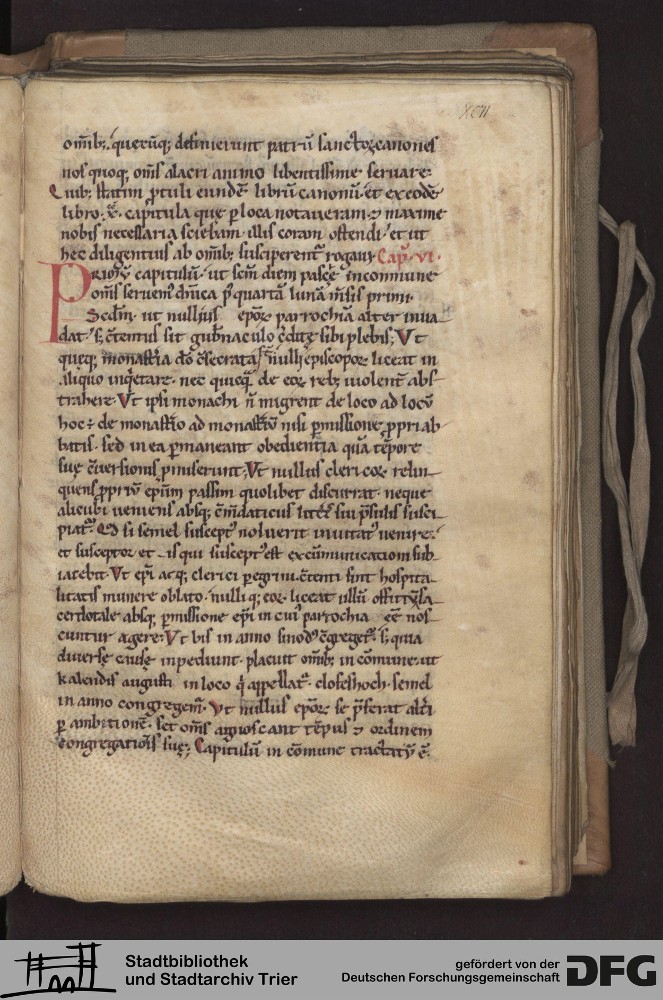 XCVII
omīb;. querūq; definierunt patrū sanctoꝝ canones
nos quoq; om̄s alacri animo libentissime seruare.
Quib; statim ꝓtuli eundē librū canonū. et ex eodē
libro .x̄. capitula que ꝑ loca notaueram. ⁊ maxime
nobis necessaria sciebam. illis coram ostendi. et ut
hec diligentius ab omīb; susciperent᷑ rogaui. Cap̄. VI.
Primū capitulū. ut sc̄m diem pasce in commune
om̄s seruem᷒ dn̄ica p᷒ quartā lunā m̄sis primi.
Secdm̄. ut nullus ep̄oꝝ parrochiā alteri᷒ inua
dat. s; c̄tentus sit gub̄naculo c̄dite sibi plebis; Vt
queq; monast̄ia dō c̄secrata. nulli episcopoꝝ liceat in
aliquo inq̄etare. nec quicq̄ de eoꝝ reb; uiolent̄ abs
trahere. Vt ipsi monachi n̄ migrent de loco ad locū
hoc ÷ de monast̄io ad monast̄iū nisi ꝑmissione ꝓprii ab
batis. sed in ea ꝑmaneant obedientia quā tēpore
sue c̄uersionis ꝓmiserunt; Vt nullus clericoꝝ relin
quens ꝓpriū ep̄um passim quolibet discurrat. neque
alicubi ueniens absq; c̄mdaticiis litt̄is sui p̄sulis susci
piat᷑. Qd si semel suscept᷒ noluerit inuitat᷒ uenire.
et susceptor et is qui suscept᷒ est excūmunicationi sub
iacebit. Vt ep̄i atq; clerici peregrini c̄tenti sint hospita
litatis munere oblato. nulliq; eoꝝ liceat ullū offitiū sa
cerdotale absq; ꝑmissione ep̄i in cui᷒ parrochia eē nos
cuntur agere. Vt bis in anno sinod᷒ c̄greget᷑. s; quia
diuerse cause inpediunt. placuit omīb; in cōmune. ut
kalendis augusti in loco q̄ appellat᷑ clofeshoch. semel
in anno congregem᷑. Vt nullus ep̄oꝝ se p̄ferat alt̄i
ꝑ ambitionē. set om̄s agnoscant tēpus ⁊ ordinem
congregationis sue; Capitulū in cōmune tractat᷒ ē.
Stadtbibliothek
und Stadtarchiv Trier
gefördert von der
Deutschen Forschungsgemeinschaft
DFG